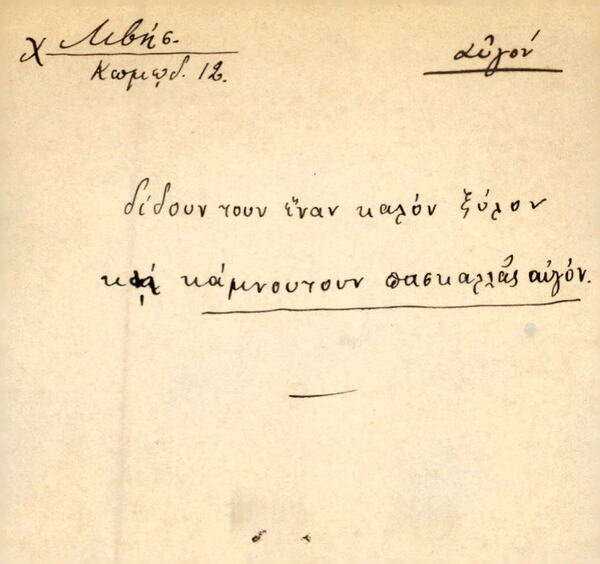 χ Λιβήσ.
Κωμῳδ. 12.
αὐγόν
δίδουν τουν ἕναν καλόν ξύλον
καὶ κάμνουτουν πασκαλλιᾶς αὐγόν.